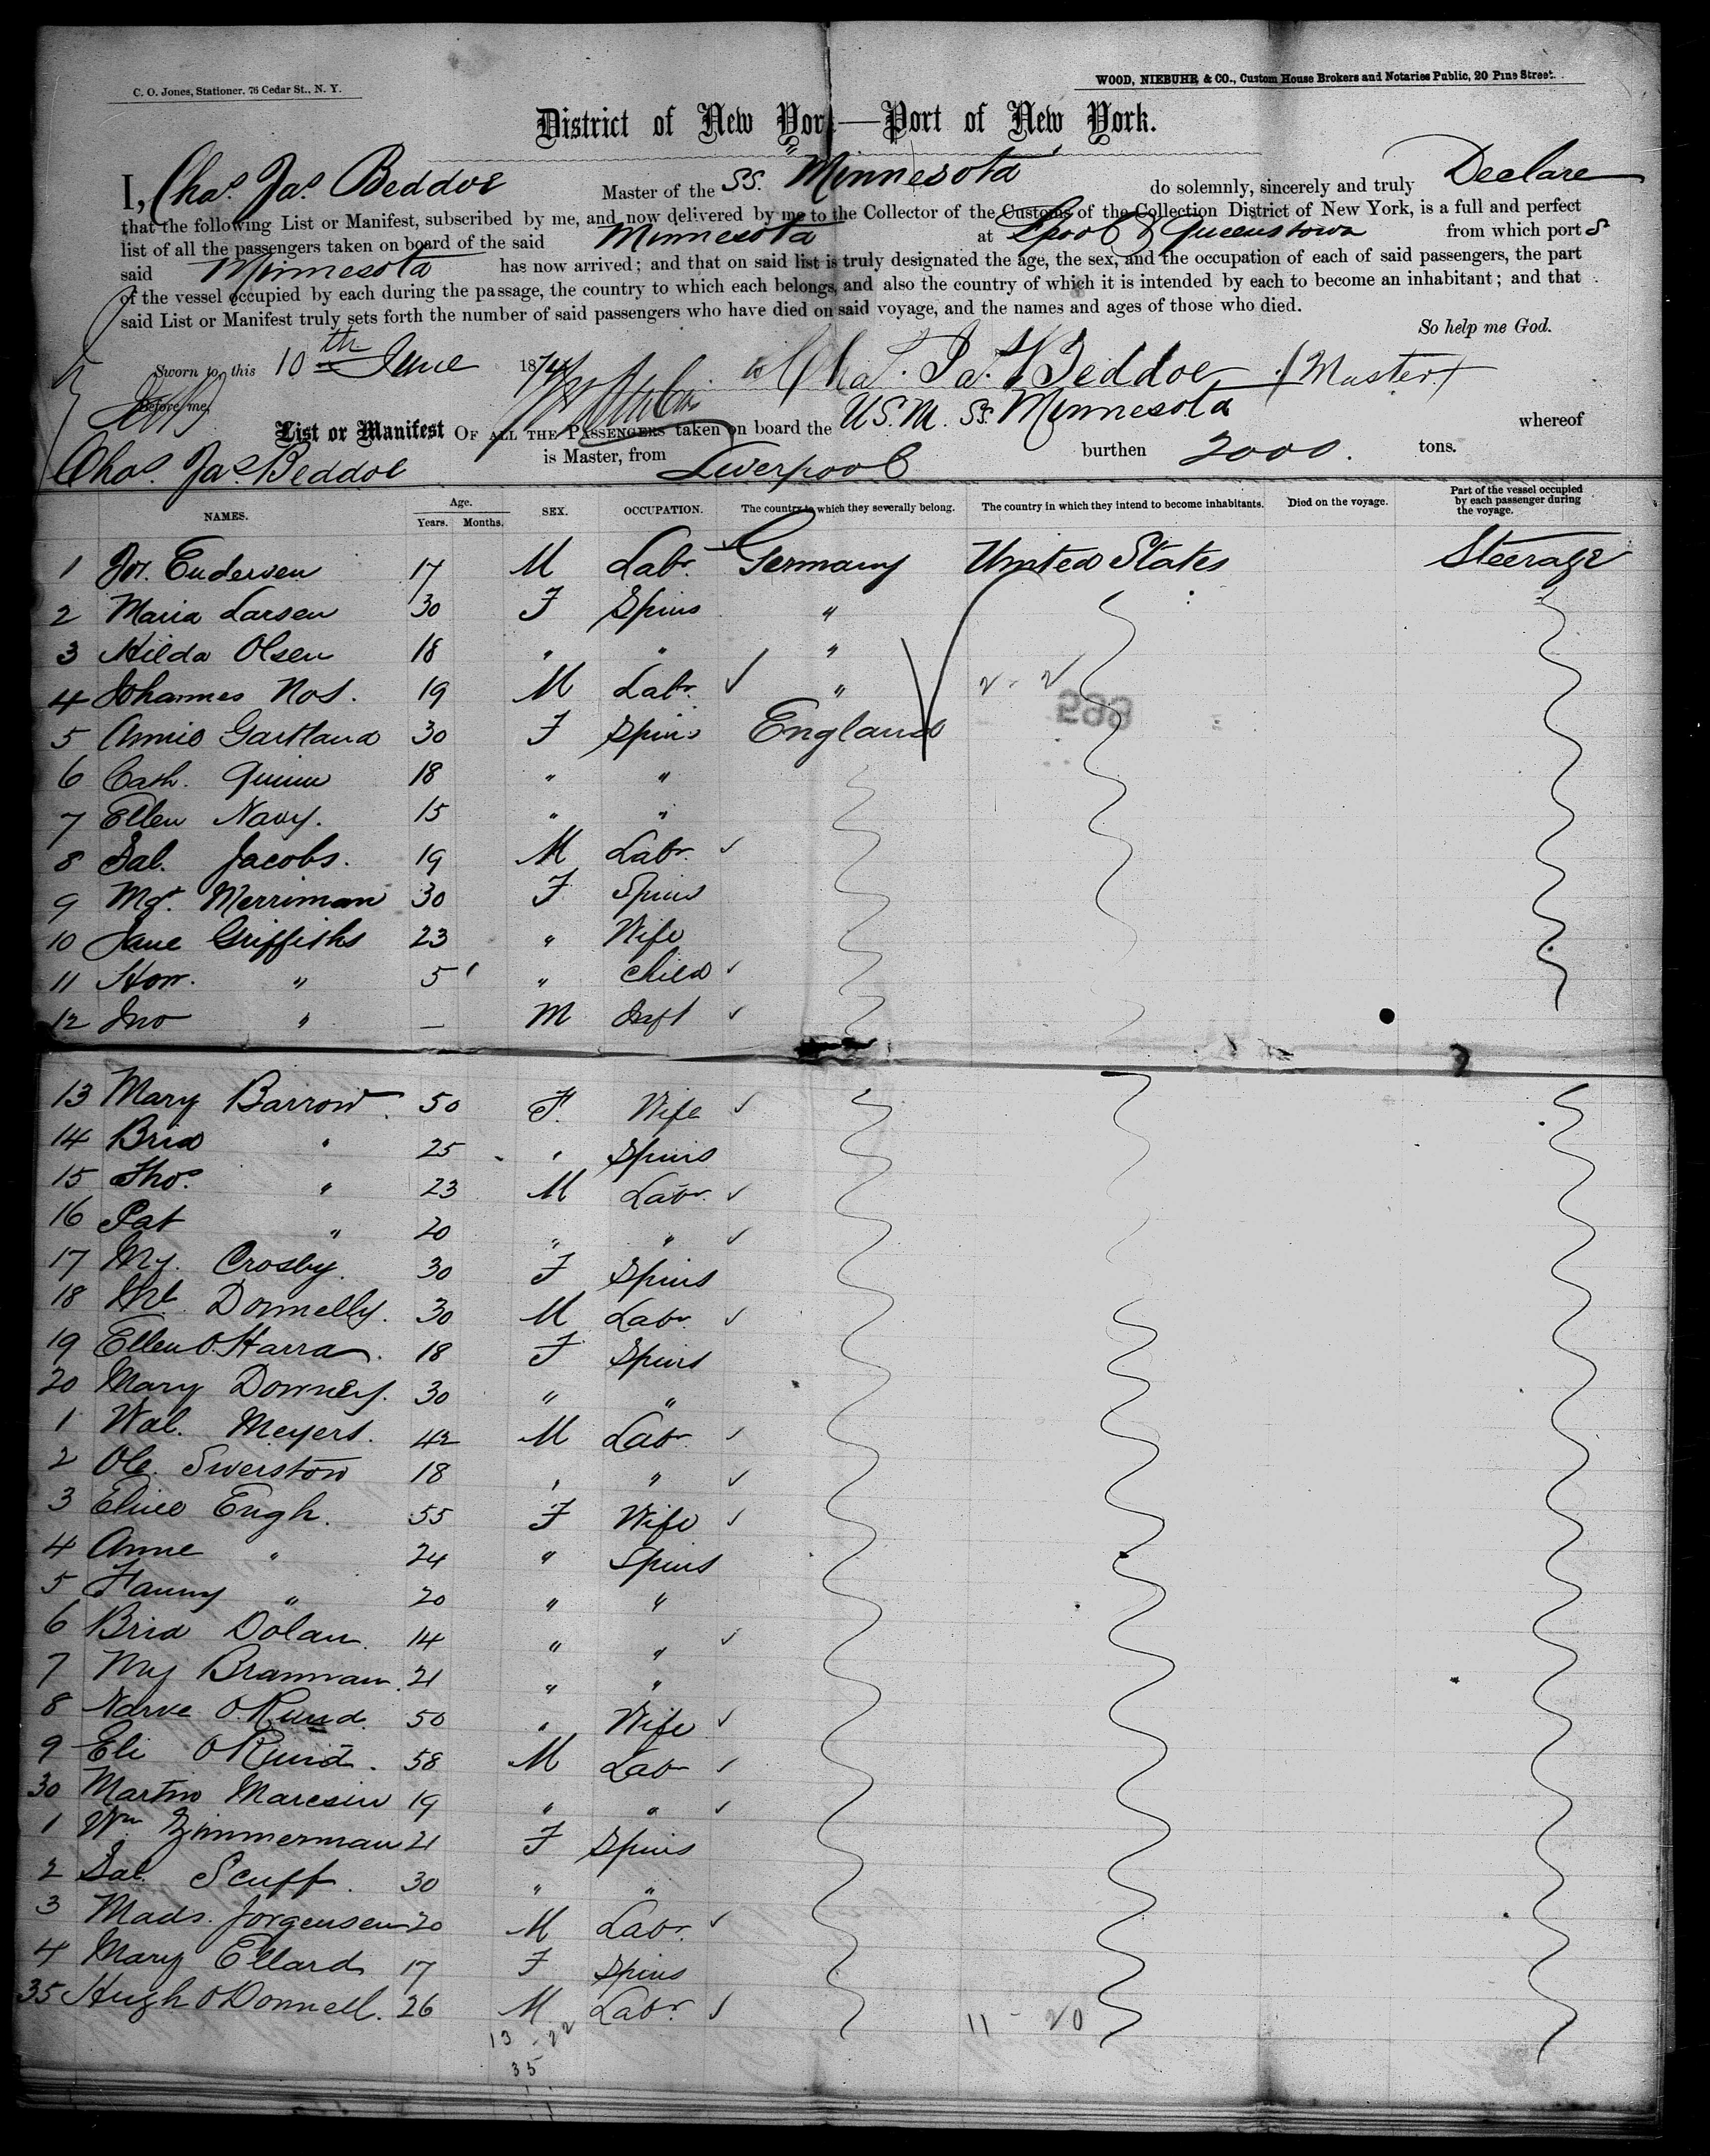 C. O. Jones, Stationer, 76 Cedar St., N. Y.
WOOD, NIEBUHR & CO., Custom House Brokers and Notaries Public, 20 Pine Street.
District of New York—Port of New York.
I, Chas. Jas. Beddoe Master of the SS. "Minnesota" do solemnly, sincerely and truly Declare
that the following List or Manifest, subscribed by me, and now delivered by me to the Collector of the Customs of the Collection District of New York, is a full and perfect
list of all the passengers taken on board of the said Minnesota at Lpool & Queenstown from which port s
said Minnesota has now arrived; and that on said list is truly designated the age, the sex, and the occupation of each of said passengers, the part
of the vessel occupied by each during the passage, the country to which each belongs, and also the country of which it is intended by each to become an inhabitant; and that
said List or Manifest truly sets forth the number of said passengers who have died on said voyage, and the names and ages of those who died.
So help me God.
Sworn to this 10th June 1874 Chas. Jas. Beddoe (Master)
Before me,
List or Manifest OF ALL THE PASSENGERS taken on board the U.S.M. SS. Minnesota whereof
Chas. Jas. Beddoe is Master, from Liverpool burthen 2000. tons.
NAMES. Age. Years. Months. SEX. OCCUPATION. The country to which they severally belong. The country in which they intend to become inhabitants. Died on the voyage. Part of the vessel occupied by each passenger during the voyage.
1 Endersen 17 M Labr. Germany United States Steerage
2 Maria Larsen 30 F Spins "
3 Hilda Olsen 18 " " "
4 Johannes Nos. 19 M Labr. "
5 Annie Gartland 30 F Spins England
6 Cath. Quinn 18 " "
7 Ellen Navy. 15 " "
8 Sal. Jacobs. 19 M Labr.
9 Mgt. Merriman 30 F Spins
10 Jane Griffiths 23 " Wife
11 Hon. " 5 " Child
12 Jno " — M Inft
13 Mary Barrow. 50 F. Wife
14 Brid " 25 " Spins
15 Thos. " 23 M Labr.
16 Pat " 20 " "
17 My. Crosby. 30 F Spins
18 Ml. Donnelly. 30 M Labr.
19 Ellen O.Harra. 18 F Spins
20 Mary Downey. 30 " "
1 Wal. Meyers. 42 M Labr.
2 Ole. Swerstow 18 " "
3 Engh. 55 F Wife
4 Anne " 24 " Spins
5 Fanny " 20 " "
6 Brid Dolan. 14 " "
7 My Brannan. 21 " "
8 Narve O.Ruud. 50 " Wife
9 Eli O Ruud. 58 M Labr
30 Martin Maresin 19 " "
1 Wm Zimmerman 21 F Spins
2 Sal. Scuff. 30 " "
3 Mads. Jorgensen 20 M Labr.
4 Mary Ellard 17 F Spins
35 Hugh O Donnell. 26 M Labr.
13 - 22 11 - 20
35